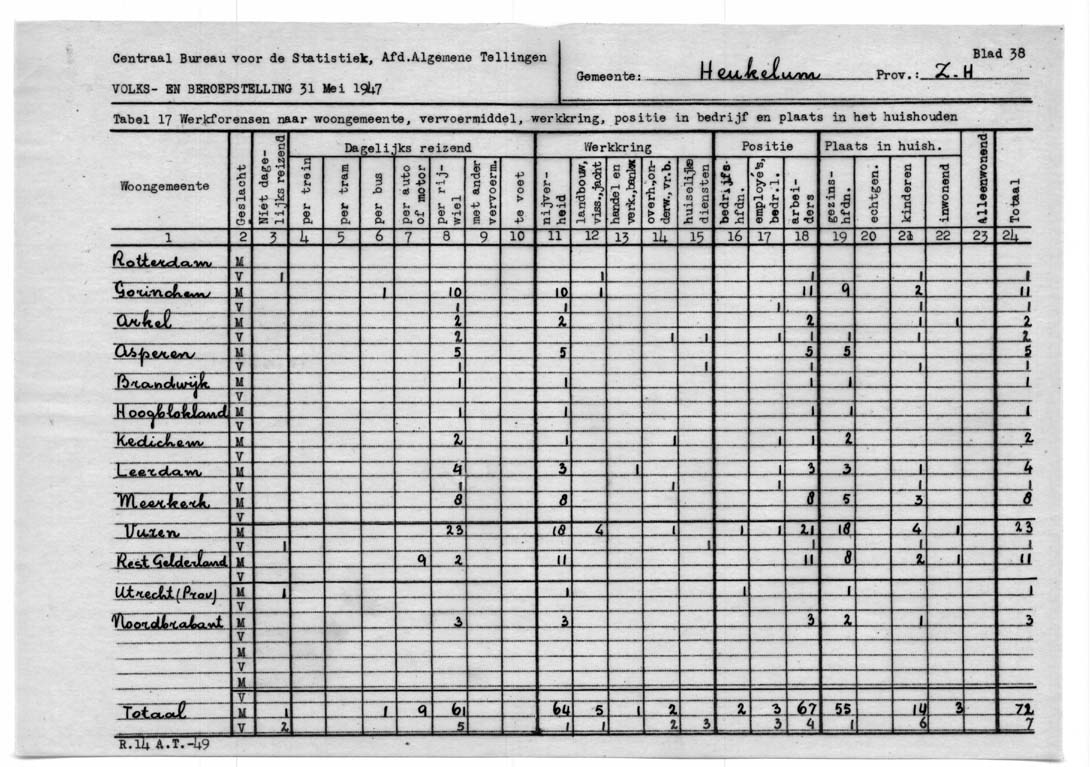 Centraal Bureau voor de Statistiek, Afd.Algemene Tellingen
VOLKS- EN BEROEPSTELLING 31 Mei 1947
Gemeente: Heukelum Prov.: Z-H
Blad 38
Tabel 17 Werkforensen naar woongemeente, vervoermiddel, werkkring, positie in bedrijf en plaats in het huishouden
Woongemeente | Geslacht | Niet dage-lijks reizend | Dagelijks reizend | Werkkring | Positie | Plaats in huish. | Alleenwonend | Totaal
per trein | per tram | per bus | per auto of motor | per rij-wiel | met ander vervoerm. | te voet | nijver-heid | landbouw, viss.,jacht | handel en verk.,bankw | overh.,on-derw.,vr.b. | huiselijke diensten | bedrijfs-hfdn. | employé's, bedr.l. | arbei-ders | gezins-hfdn. | echtgen. | kinderen | inwonend
1 2 3 4 5 6 7 8 9 10 11 12 13 14 15 16 17 18 19 20 21 22 23 24
Rotterdam M
V 1 1 1 1 1
Gorinchem M 1 10 10 1 11 9 2 11
V 1 1 1 1 1
Arkel M 2 2 2 1 1 2
V 2 1 1 1 1 1 1 2
Asperen M 5 5 5 5 5
V 1 1 1 1 1
Brandwijk M 1 1 1 1 1
V
Hoogblokland M 1 1 1 1 1
V
Kedichem M 2 1 1 1 1 2 2
V
Leerdam M 4 3 1 1 3 3 1 4
V 1 1 1 1 1
Meerkerk M 8 8 8 5 3 8
V
Vuren M 23 18 4 1 1 1 21 18 4 1 23
V 1 1 1 1 1
Rest Gelderland M 9 2 11 11 8 2 1 11
V
Utrecht (Prov) M 1 1 1 1 1
V
Noordbrabant M 3 3 3 2 1 3
V
M
V
M
V
Totaal M 1 1 9 61 64 5 1 2 2 3 67 55 14 3 72
V 2 5 1 1 2 3 3 4 1 6 7
R.14 A.T.-49